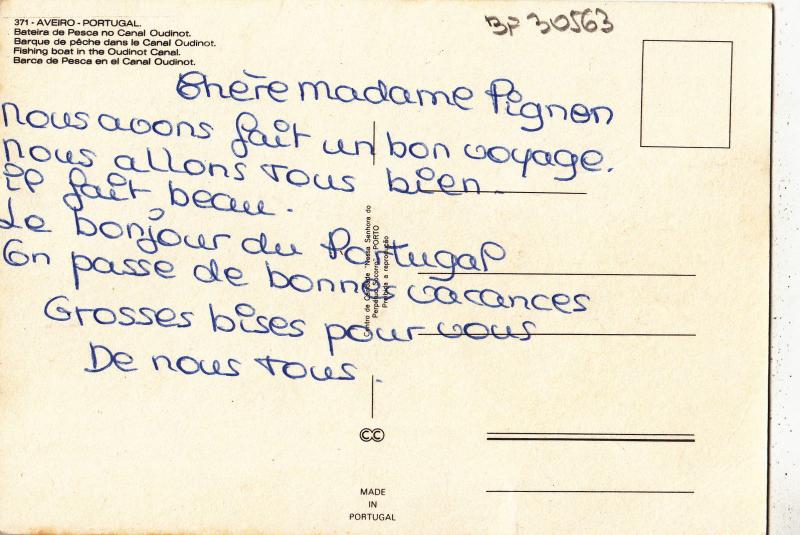 371 - AVEIRO - PORTUGAL.
Bateira de Pesca no Canal Oudinot.
Barque de pêche dans le Canal Oudinot.
Fishing boat in the Oudinot Canal.
Barca de Pesca en el Canal Oudinot.
BP 30563
Chère madame Pignon
nous avons fait un bon voyage.
nous allons tous bien.
il fait beau.
Le bonjour du Portugal
On passe de bonnes vacances
Grosses bises pour vous
De nous tous.
Centro de Caridade "Nossa Senhora do
Perpétuo Socorro" - PORTO
Proibida a reprodução
CC
MADE
IN
PORTUGAL